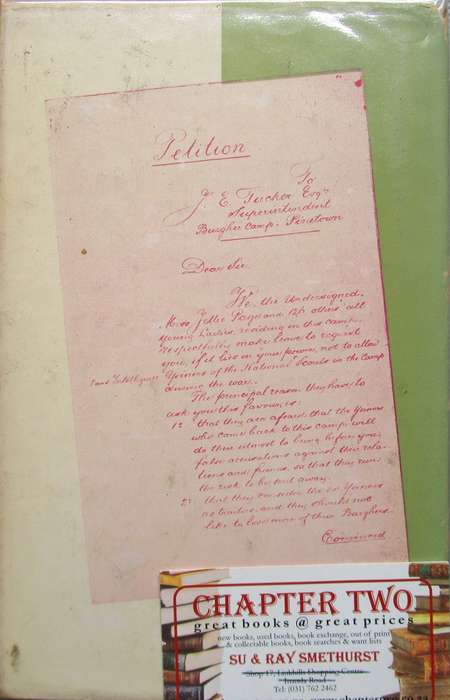 Petition
To
J. E. Tucker Esqr
Superintendent
Burgher Camp - Irenetown
Dear Sir.
We, the Undersigned,
Miss Jellie and 126 others all
Young Ladies, residing in this camp,
respectfully make leave to request
you, if it lies in your power, not to allow
and Intelligence Joiners of the National Scouts in the Camp
during the war.
The principal reason they have to
ask you this favour, is:
1º that they are afraid that the Joiners
who come back to this camp will
do their utmost to bring before you
false accusations against their rela-
tions and friends, so that they run
the risk to be sent away.
2º that they consider the Joiners
as traitors, and they should not
like to lose more of their Burghers.
Continued
CHAPTER TWO
great books @ great prices
new books, used books, book exchange, out of print
& collectable books, book searches & want lists
SU & RAY SMETHURST
Shop 17, Linkhills Shopping Centre
Inanda Road
Tel: (031) 762 2462